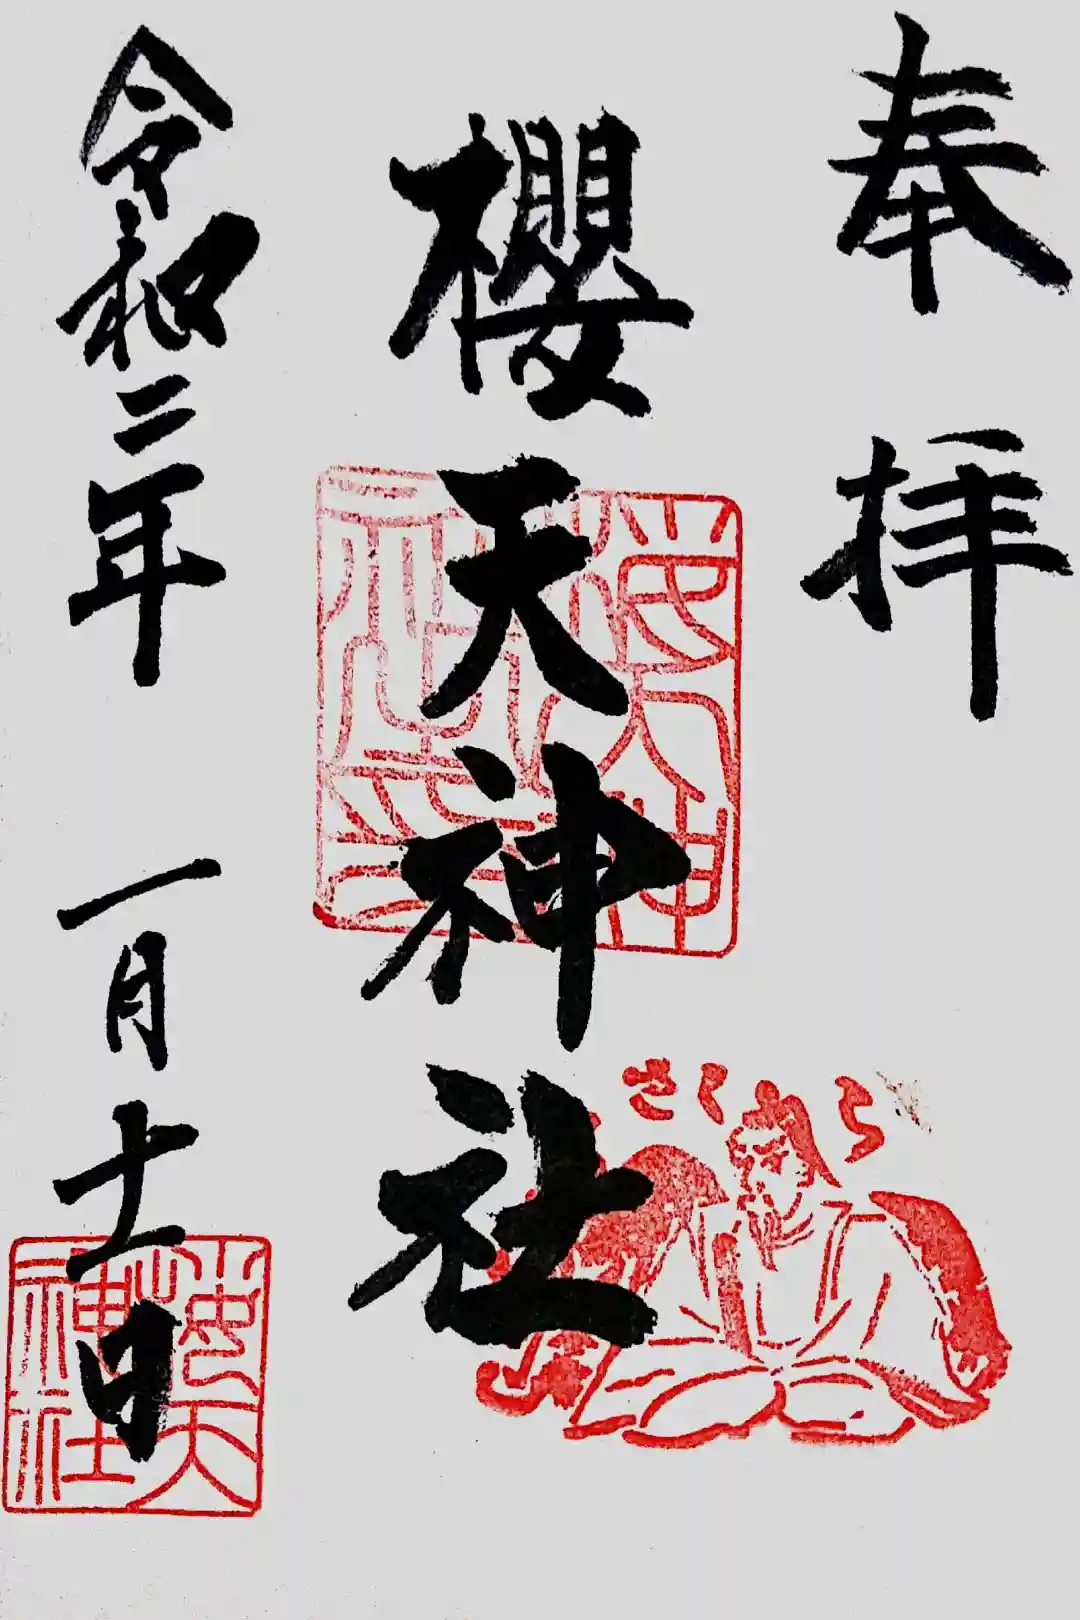 奉拝
櫻天神社
さくら
令和二年 一月十一日
櫻天神社